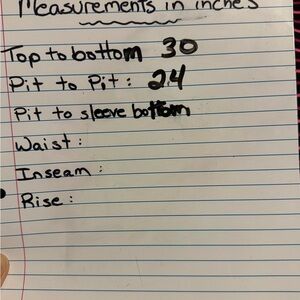 Measurements in inches
Top to bottom 30
Pit to Pit : 24
Pit to sleeve bottom
Waist :
Inseam :
Rise :